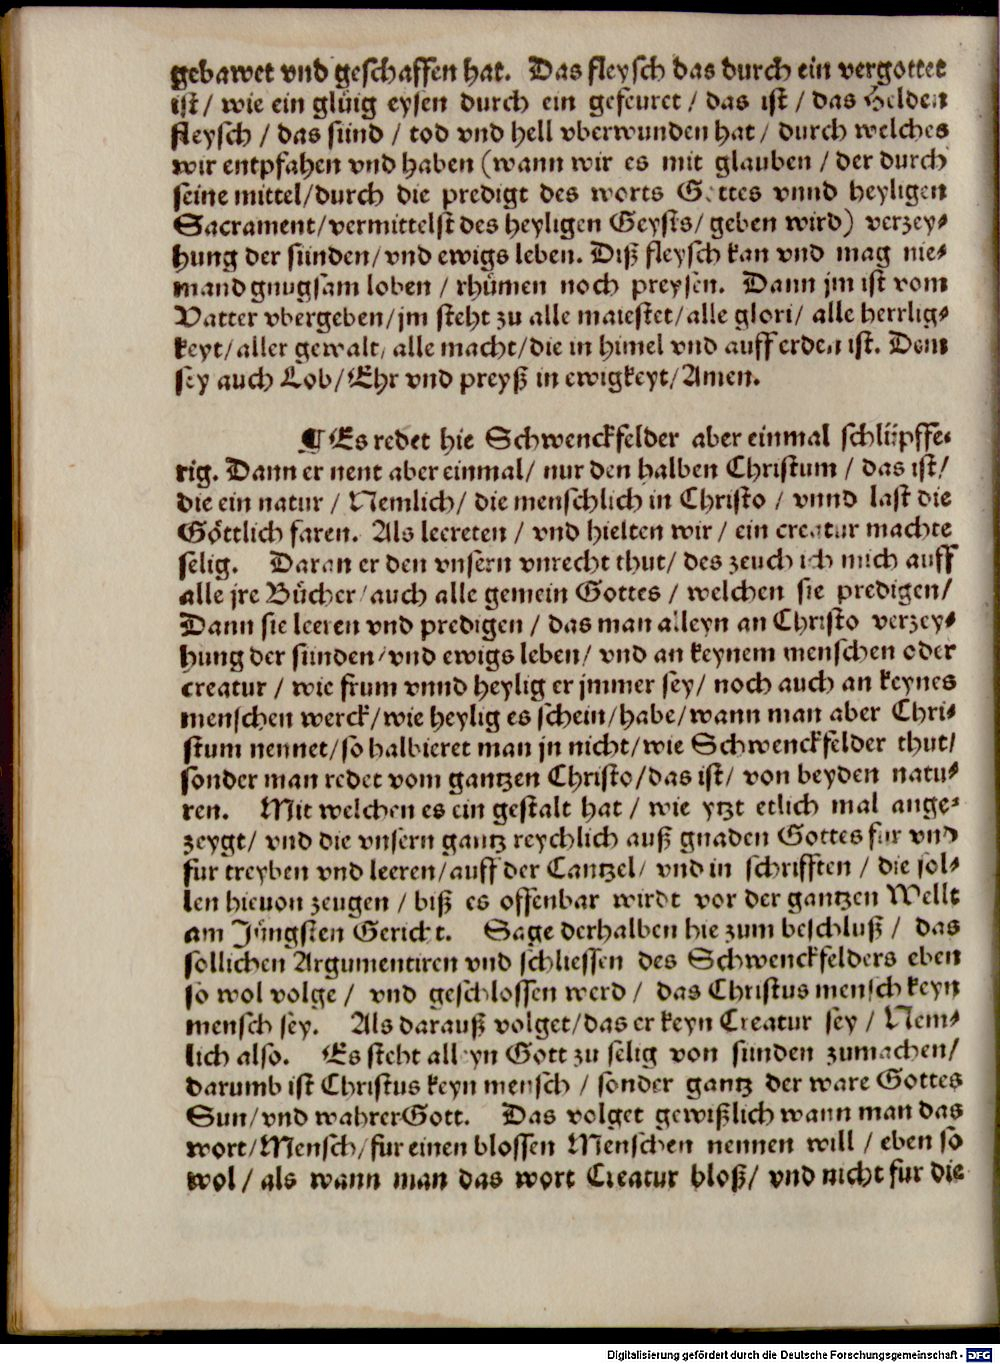 gebawet vnd geschaffen hat. Das fleysch das durch ein vergottet
ist / wie ein glüig eysen durch ein gefeuret / das ist / das Helden
fleysch / das sünd / tod vnd hell vberwunden hat / durch welches
wir entpfahen vnd haben (wann wir es mit glauben / der durch
seine mittel/durch die predigt des worts Gottes vnnd heyligen
Sacrament/vermittelst des heyligen Geysts/ geben wird) verzey-
hung der sünden/vnd ewigs leben. Diß fleysch kan vnd mag nie-
mand gnugsam loben / rhümen noch preysen. Dann jm ist vom
Vatter vbergeben/jm steht zu alle maiestet/alle glori/ alle herrlig-
keyt/aller gewalt/ alle macht/die in himel vnd auff erden ist. Dem
sey auch Lob/Ehr vnd preyß in ewigkeyt/Amen.
¶ Es redet hie Schwenckfelder aber einmal schlüpffe-
rig. Dann er nent aber einmal/ nur den halben Christum / das ist/
die ein natur / Nemlich/ die menschlich in Christo / vnnd last die
Göttlich faren. Als leereten / vnd hielten wir / ein creatur machte
selig. Daran er den vnsern vnrecht thut/ des zeuch ich mich auff
alle jre Bücher/auch alle gemein Gottes / welchen sie predigen/
Dann sie leeren vnd predigen / das man alleyn an Christo verzey-
hung der sünden/vnd ewigs leben/ vnd an keynem menschen oder
creatur / wie frum vnnd heylig er jmmer sey/ noch auch an keynes
menschen werck/wie heylig es schein/habe/wann man aber Chri-
stum nennet/so halbieret man jn nicht/wie Schwenckfelder thut/
sonder man redet vom gantzen Christo/das ist/ von beyden natu-
ren. Mit welchen es ein gestalt hat / wie ytzt etlich mal ange-
zeygt/ vnd die vnsern gantz reychlich auß gnaden Gottes für vnd
für treyben vnd leeren/auff der Cantzel/ vnd in schrifften / die sol-
len hieuon zeugen / biß es offenbar wirdt vor der gantzen Wellt
am Jüngsten Gericht. Sage derhalben hie zum beschluß / das
sollichen Argumentiren vnd schliessen des Schwenckfelders eben
so wol volge / vnd geschlossen werd / das Christus mensch keyn
mensch sey. Als darauß volget/das er keyn Creatur sey / Nem-
lich also. Es steht alleyn Gott zu selig von sünden zumachen/
darumb ist Christus keyn mensch / sonder gantz der ware Gottes
Sun/vnd wahrer Gott. Das volget gewißlich wann man das
wort/Mensch/für einen blossen Menschen nennen will / eben so
wol / als wann man das wort Creatur bloß/ vnd nicht für die
Digitalisierung gefördert durch die Deutsche Forschungsgemeinschaft - DFG